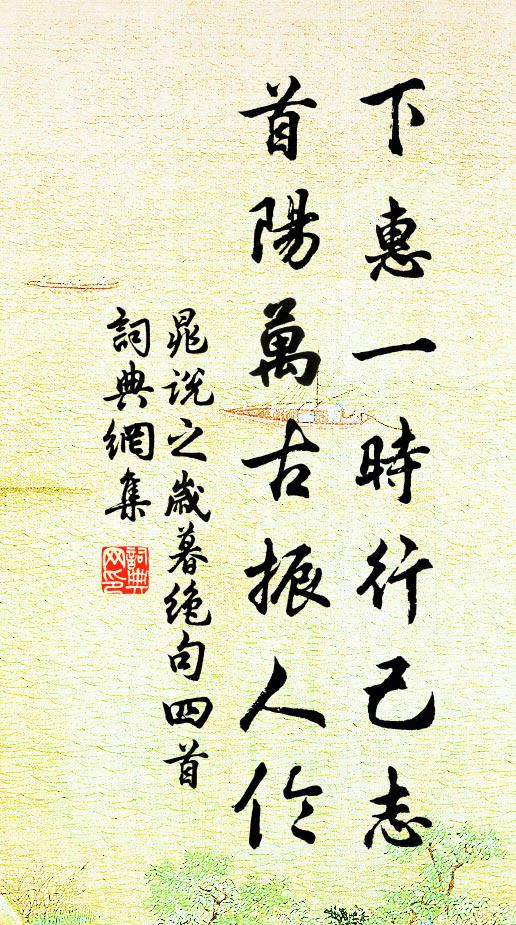 下惠一時行己志
首陽萬古振人伦
晁説之歲暮絶句四首
詞典網集
詞典网印